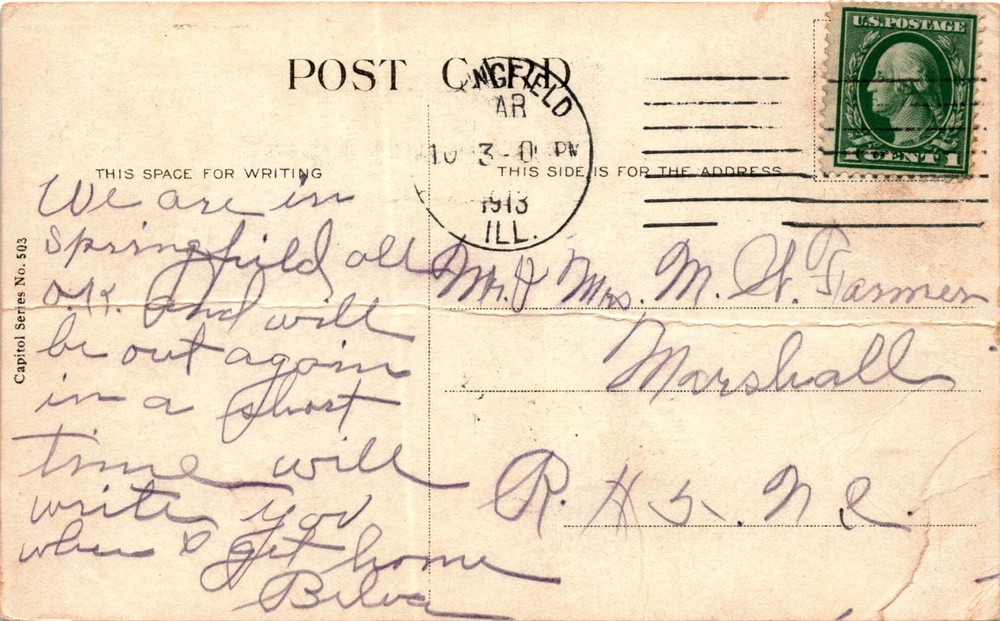 POST CARD
NGFIELD
AR
10 3-0 PM
1913
ILL.
U.S. POSTAGE
1 CENT 1
THIS SPACE FOR WRITING
THIS SIDE IS FOR THE ADDRESS
Capitol Series No. 503
We are in
Springfield all
O.K. and will
be out again
in a short
time will
write you
when I get home
Mr. & Mrs. M. W. Farmer
Marshall
R. #5. N C.